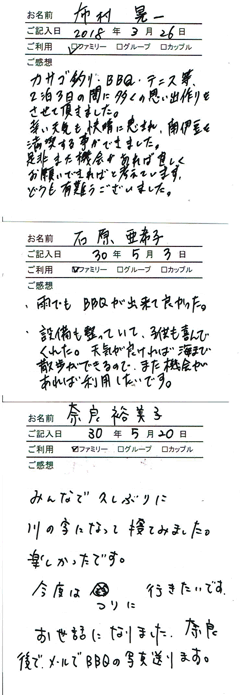 お名前 仲村 晃一
ご記入日 2018 年 3 月 26 日
ご利用 ☑ファミリー □グループ □カップル
ご感想
カサゴ釣り、BBQ・テニス等、
2泊3日の間に多くの思い出作りを
させて頂きました。
幸い天気も快晴に恵まれ、南伊豆を
満喫する事ができました。
是非また機会があれば宜しく
お願いできればと考えています。
どうも有難うございました。
お名前 石原 亜希子
ご記入日 30 年 5 月 3 日
ご利用 ☑ファミリー □グループ □カップル
ご感想
・雨でも BBQが出来て良かった。
・設備も整っていて、子供も喜んで
くれた。天気が良ければ海まで
散歩ができるので、また機会が
あれば利用したいです。
お名前 奈良 裕美子
ご記入日 30 年 5 月 20 日
ご利用 ☑ファミリー □グループ □カップル
ご感想
みんなで久しぶりに
川の字になって寝てみました。
楽しかったです。
今度は 行きたいです。
つりに
お世話になりました。奈良
後で、メールでBBQの写真送ります。